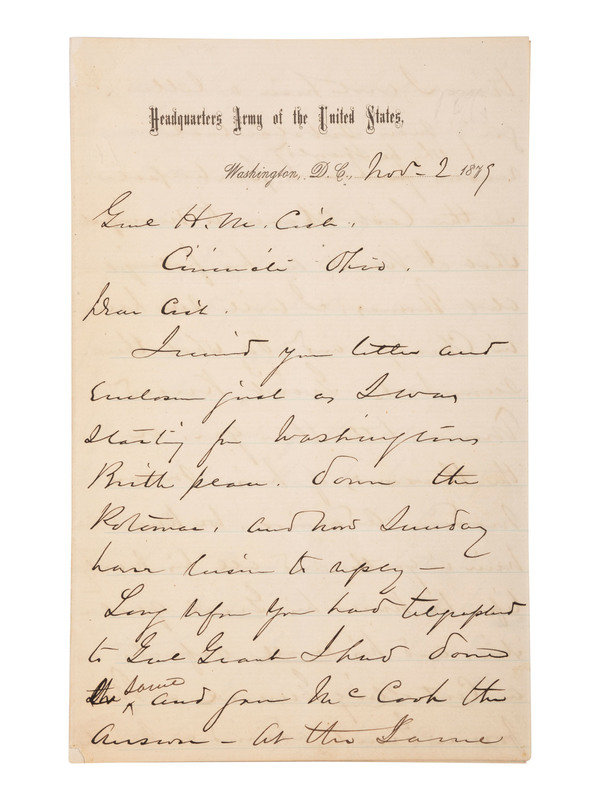 Headquarters Army of the United States.
Washington, D.C., Nov- 2 1879
Genl H. M. Cist.
Cincinnati Ohio.
Dear Cist.
I received your letter and
Enclosure just as I was
Starting for Washingtons
Birth place. down the
Potomac, and now Sunday
have leisure to reply —
Long before you had telegraphed
to Genl Grant I had done
the same and gave McCook the
Answer — At the Same